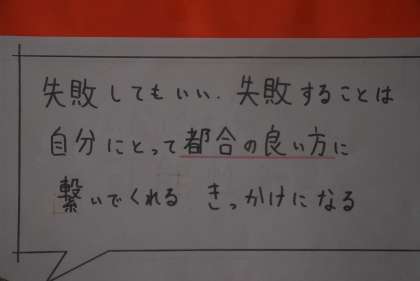 失敗してもいい. 失敗することは
自分にとって都合の良い方に
繋いでくれる きっかけになる